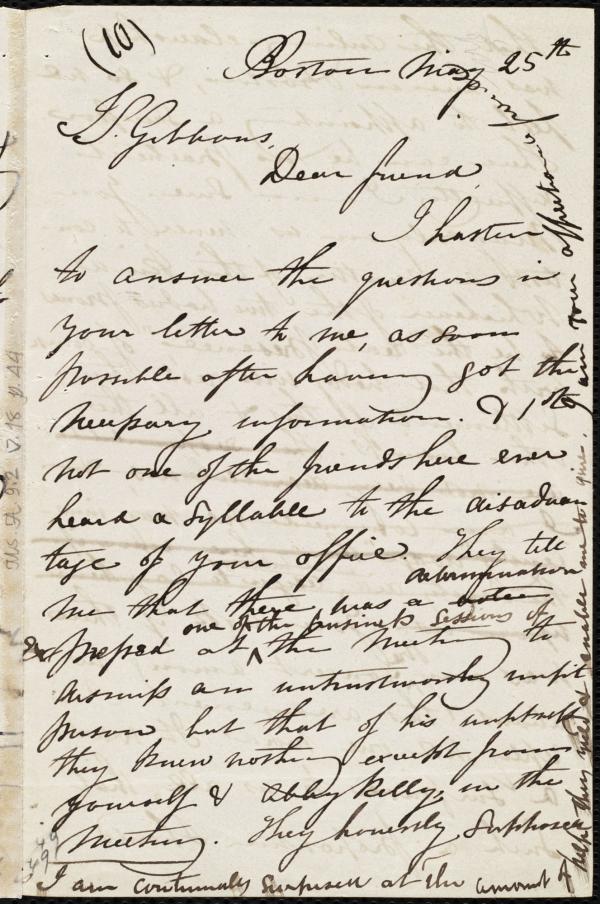 (10)
Boston May 25th
J. S. Gibbons,
Dear friend,
I hasten
to answer the questions in
your letter to me, as soon
possible after having got the
necessary information. & 1st
not one of the friends here ever
heard a syllable to the disadvan
tage of your office. They tell
me that there was a determination
expressed at one of the business sessions of the Meeting to
dismiss an untrustworthy unfit
person but that of his unfitness
they knew nothing except from
yourself & Abby Kelly, in the
Meeting. They honestly supposed
I am continually surprised at the amount of
help they need & enables me to give. I am your affectionate
friend